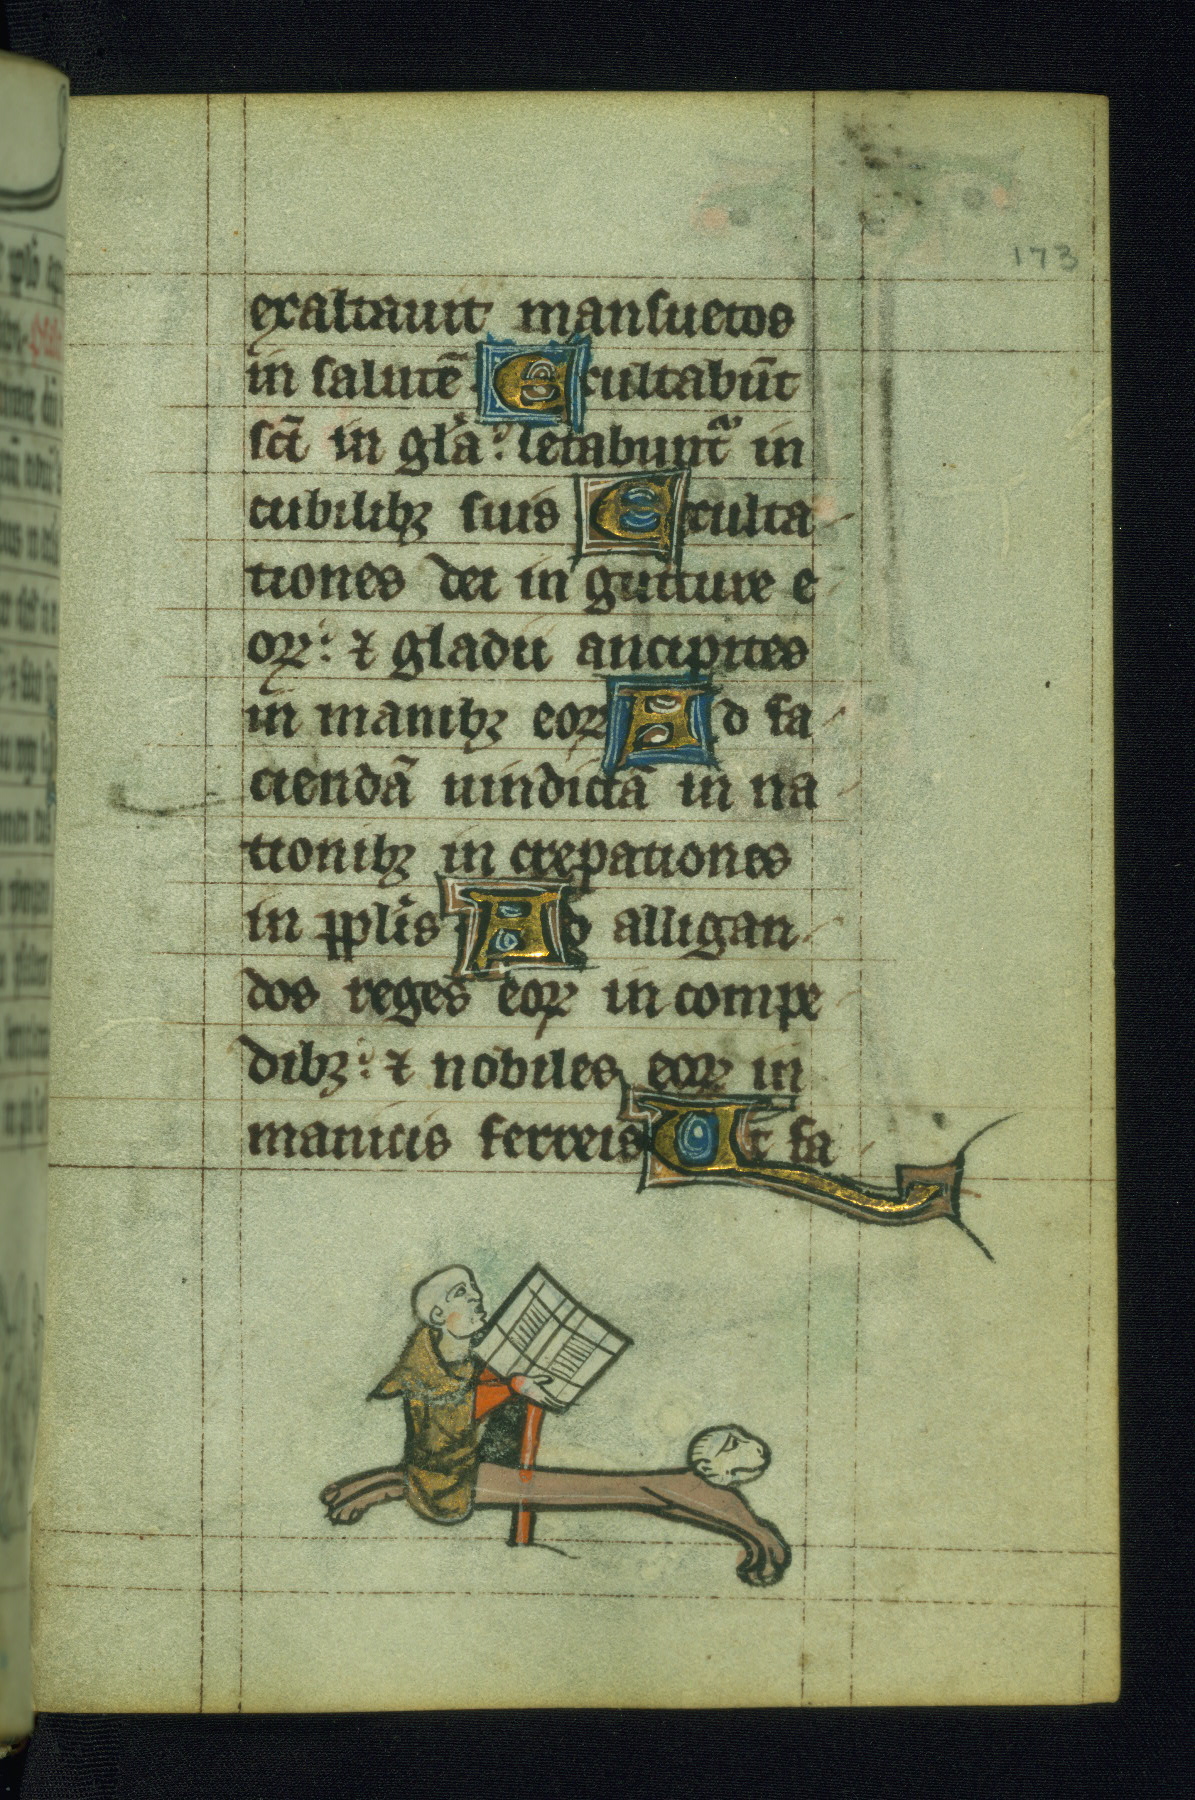 173
exaltauit mansuetos
in salutē Exultabūt
sc̄i in gl̓a : letabunt᷑ in
cubilibꝫ suis Exulta
tiones dei in gutture e
oꝝ : ⁊ gladii ancipites
in manibꝫ eoꝝ Ad fa
ciendā uindictā in na
tionibꝫ in crepationes
in pplis Ad alligan
dos reges eoꝝ in compe
dibꝫ : ⁊ nobiles eoꝝ in
manicis ferreis Ut fa